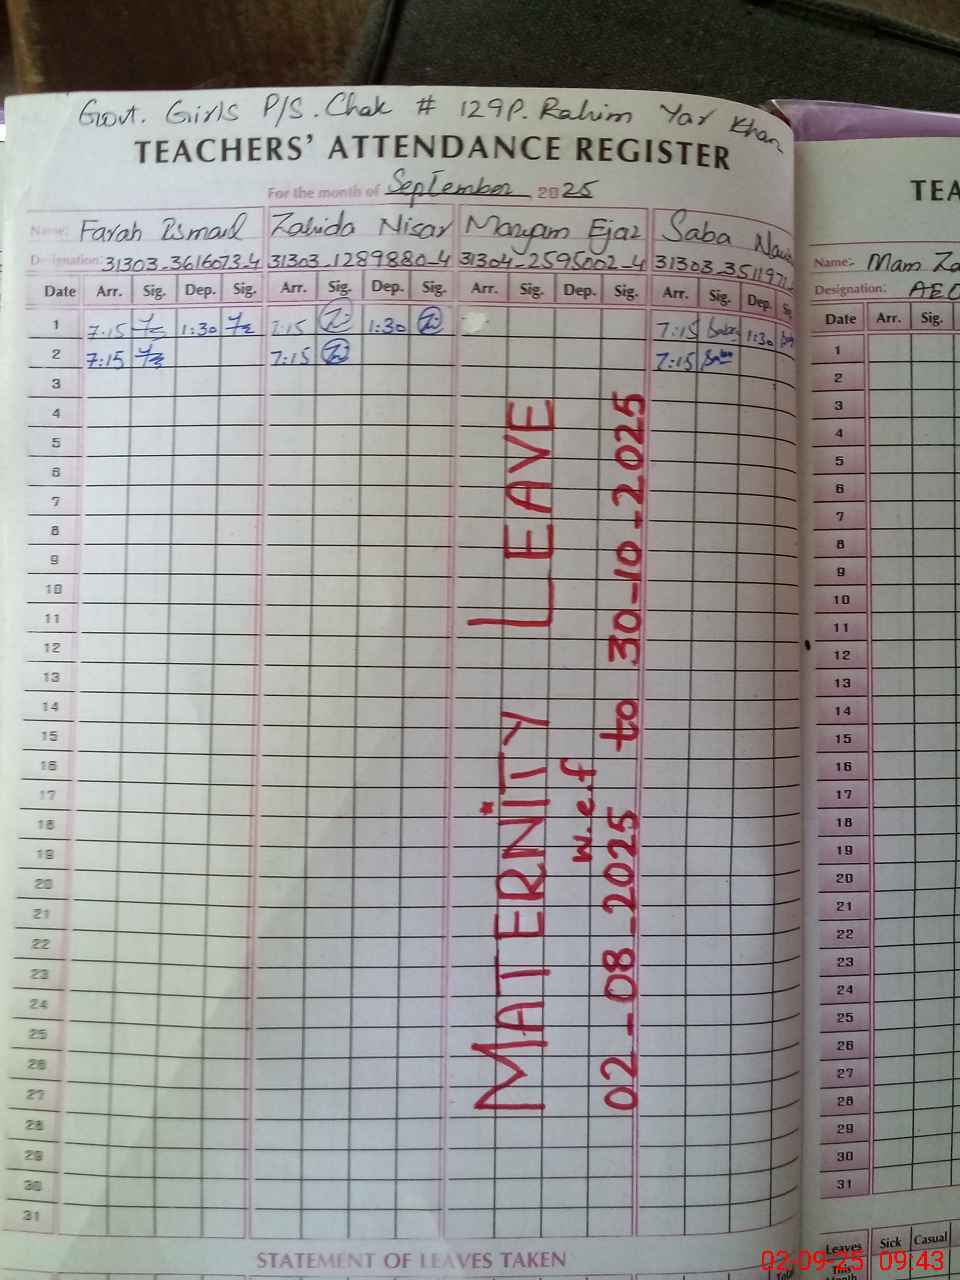 Govt. Girls P/S. Chak # 129P. Rahim Yar Khan
TEACHERS' ATTENDANCE REGISTER
For the month of September 2025
Name: Farah Ismail Zahida Nisar Maryam Ejaz Saba
Designation: 31303-3616073-4 31303-1289880-4 31304-2595002-4 31303-351197
Date Arr. Sig. Dep. Sig. Arr. Sig. Dep. Sig. Arr. Sig. Dep. Sig. Arr. Sig. Dep.
1 7:15 1:30 7:15 1:30 7:15 Saba 1:30
2 7:15 7:15 7:15 Saba
3
4
5
6
7
8
9
10
11
12
13
14
15
16
17
18
19
20
21
22
23
24
25
26
27
28
29
30
31
MATERNITY LEAVE
w.e.f
02-08-2025 to 30-10-2025
STATEMENT OF LEAVES TAKEN
TEA
Name:- Mam
Designation: AEO
Date Arr. Sig.
1
2
3
4
5
6
7
8
9
10
11
12
13
14
15
16
17
18
19
20
21
22
23
24
25
26
27
28
29
30
31
Leaves Sick Casual
This
Month
Total
02-09-25 09:43